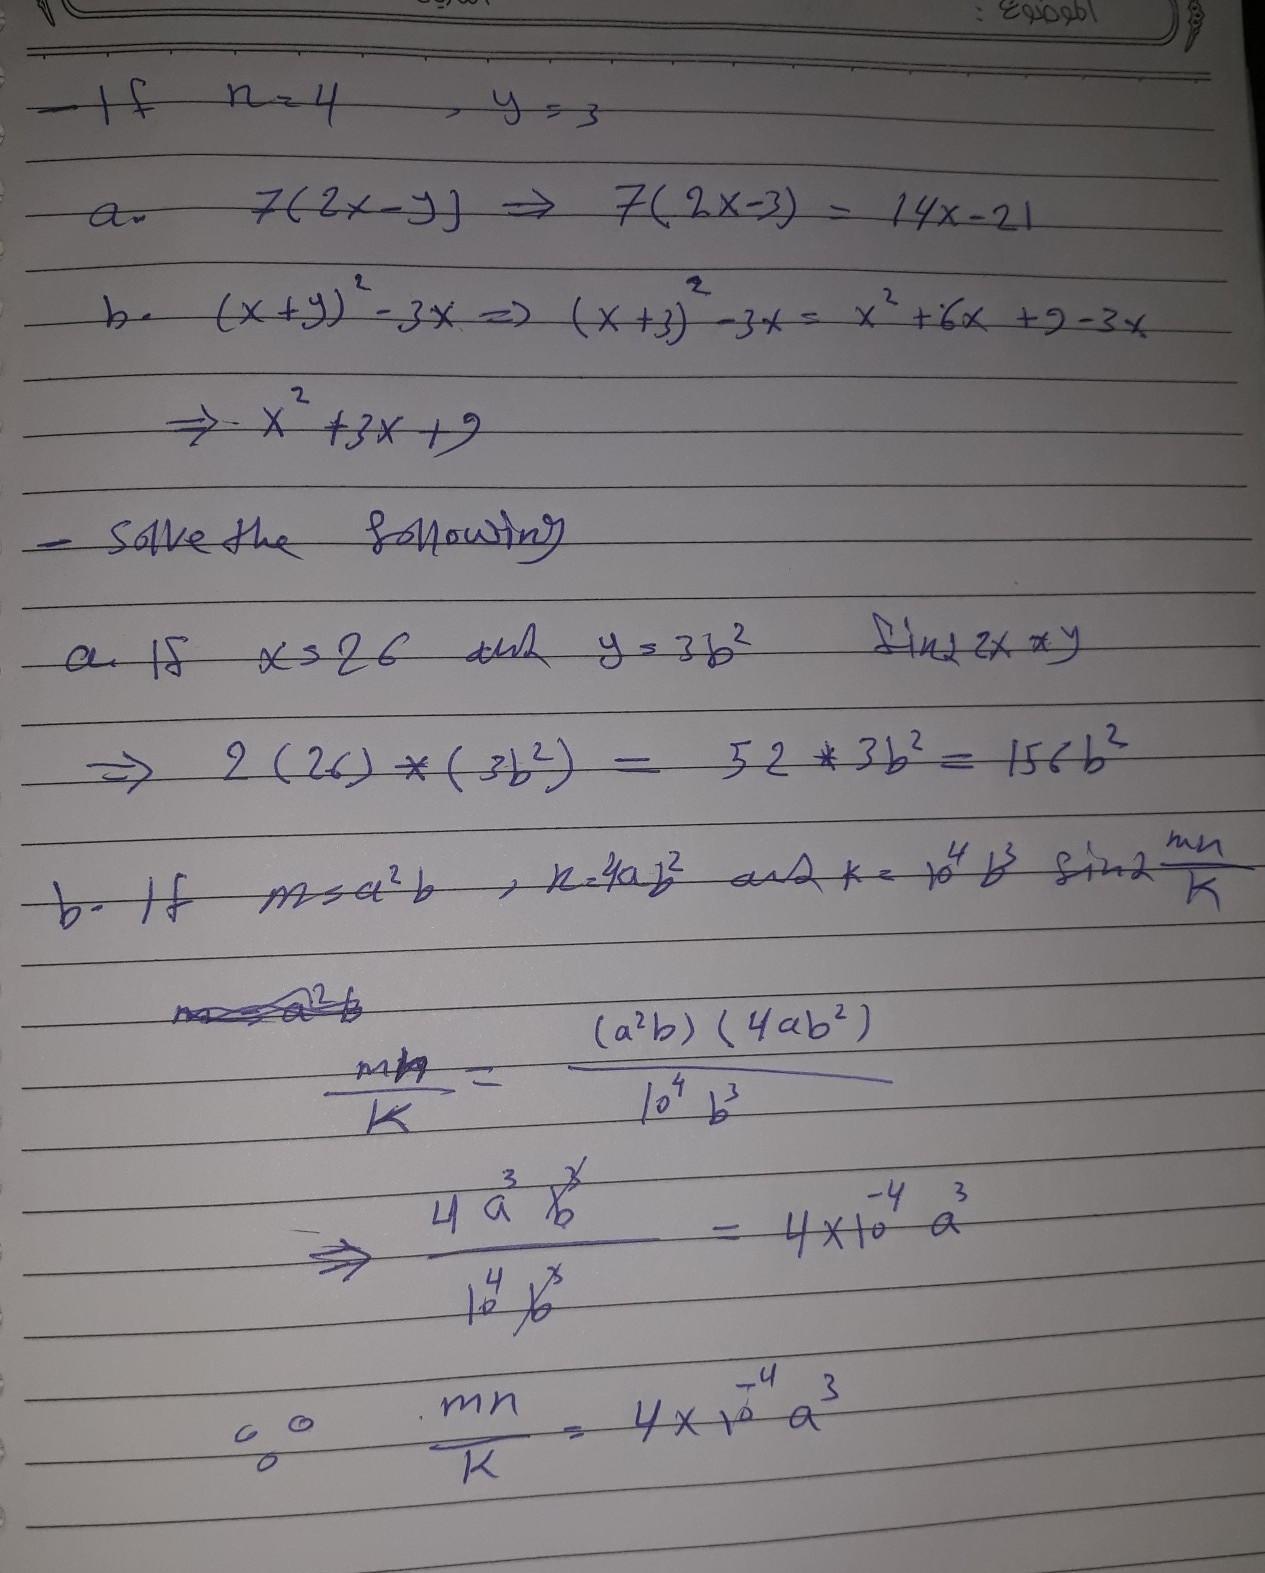 الموضوع :
- If n = 4 , y = 3
a. 7(2x-y) ⇒ 7(2x-3) = 14x-21
b. (x+y)² - 3x ⇒ (x+3)² - 3x = x² + 6x + 9 - 3x
⇒ x² + 3x + 9
- Solve the following
a. If x = 26 and y = 3b² find 2x * y
⇒ 2(26) * (3b²) = 52 * 3b² = 156b²
b. If m = a²b , n = 4ab² and k = 10⁴ b³ find mn/K
m = a²b
mn/K = (a²b)(4ab²) / 10⁴ b³
⇒ 4 a³ b³ / 10⁴ b³ = 4 × 10⁻⁴ a³
∴ mn/K = 4 × 10⁻⁴ a³